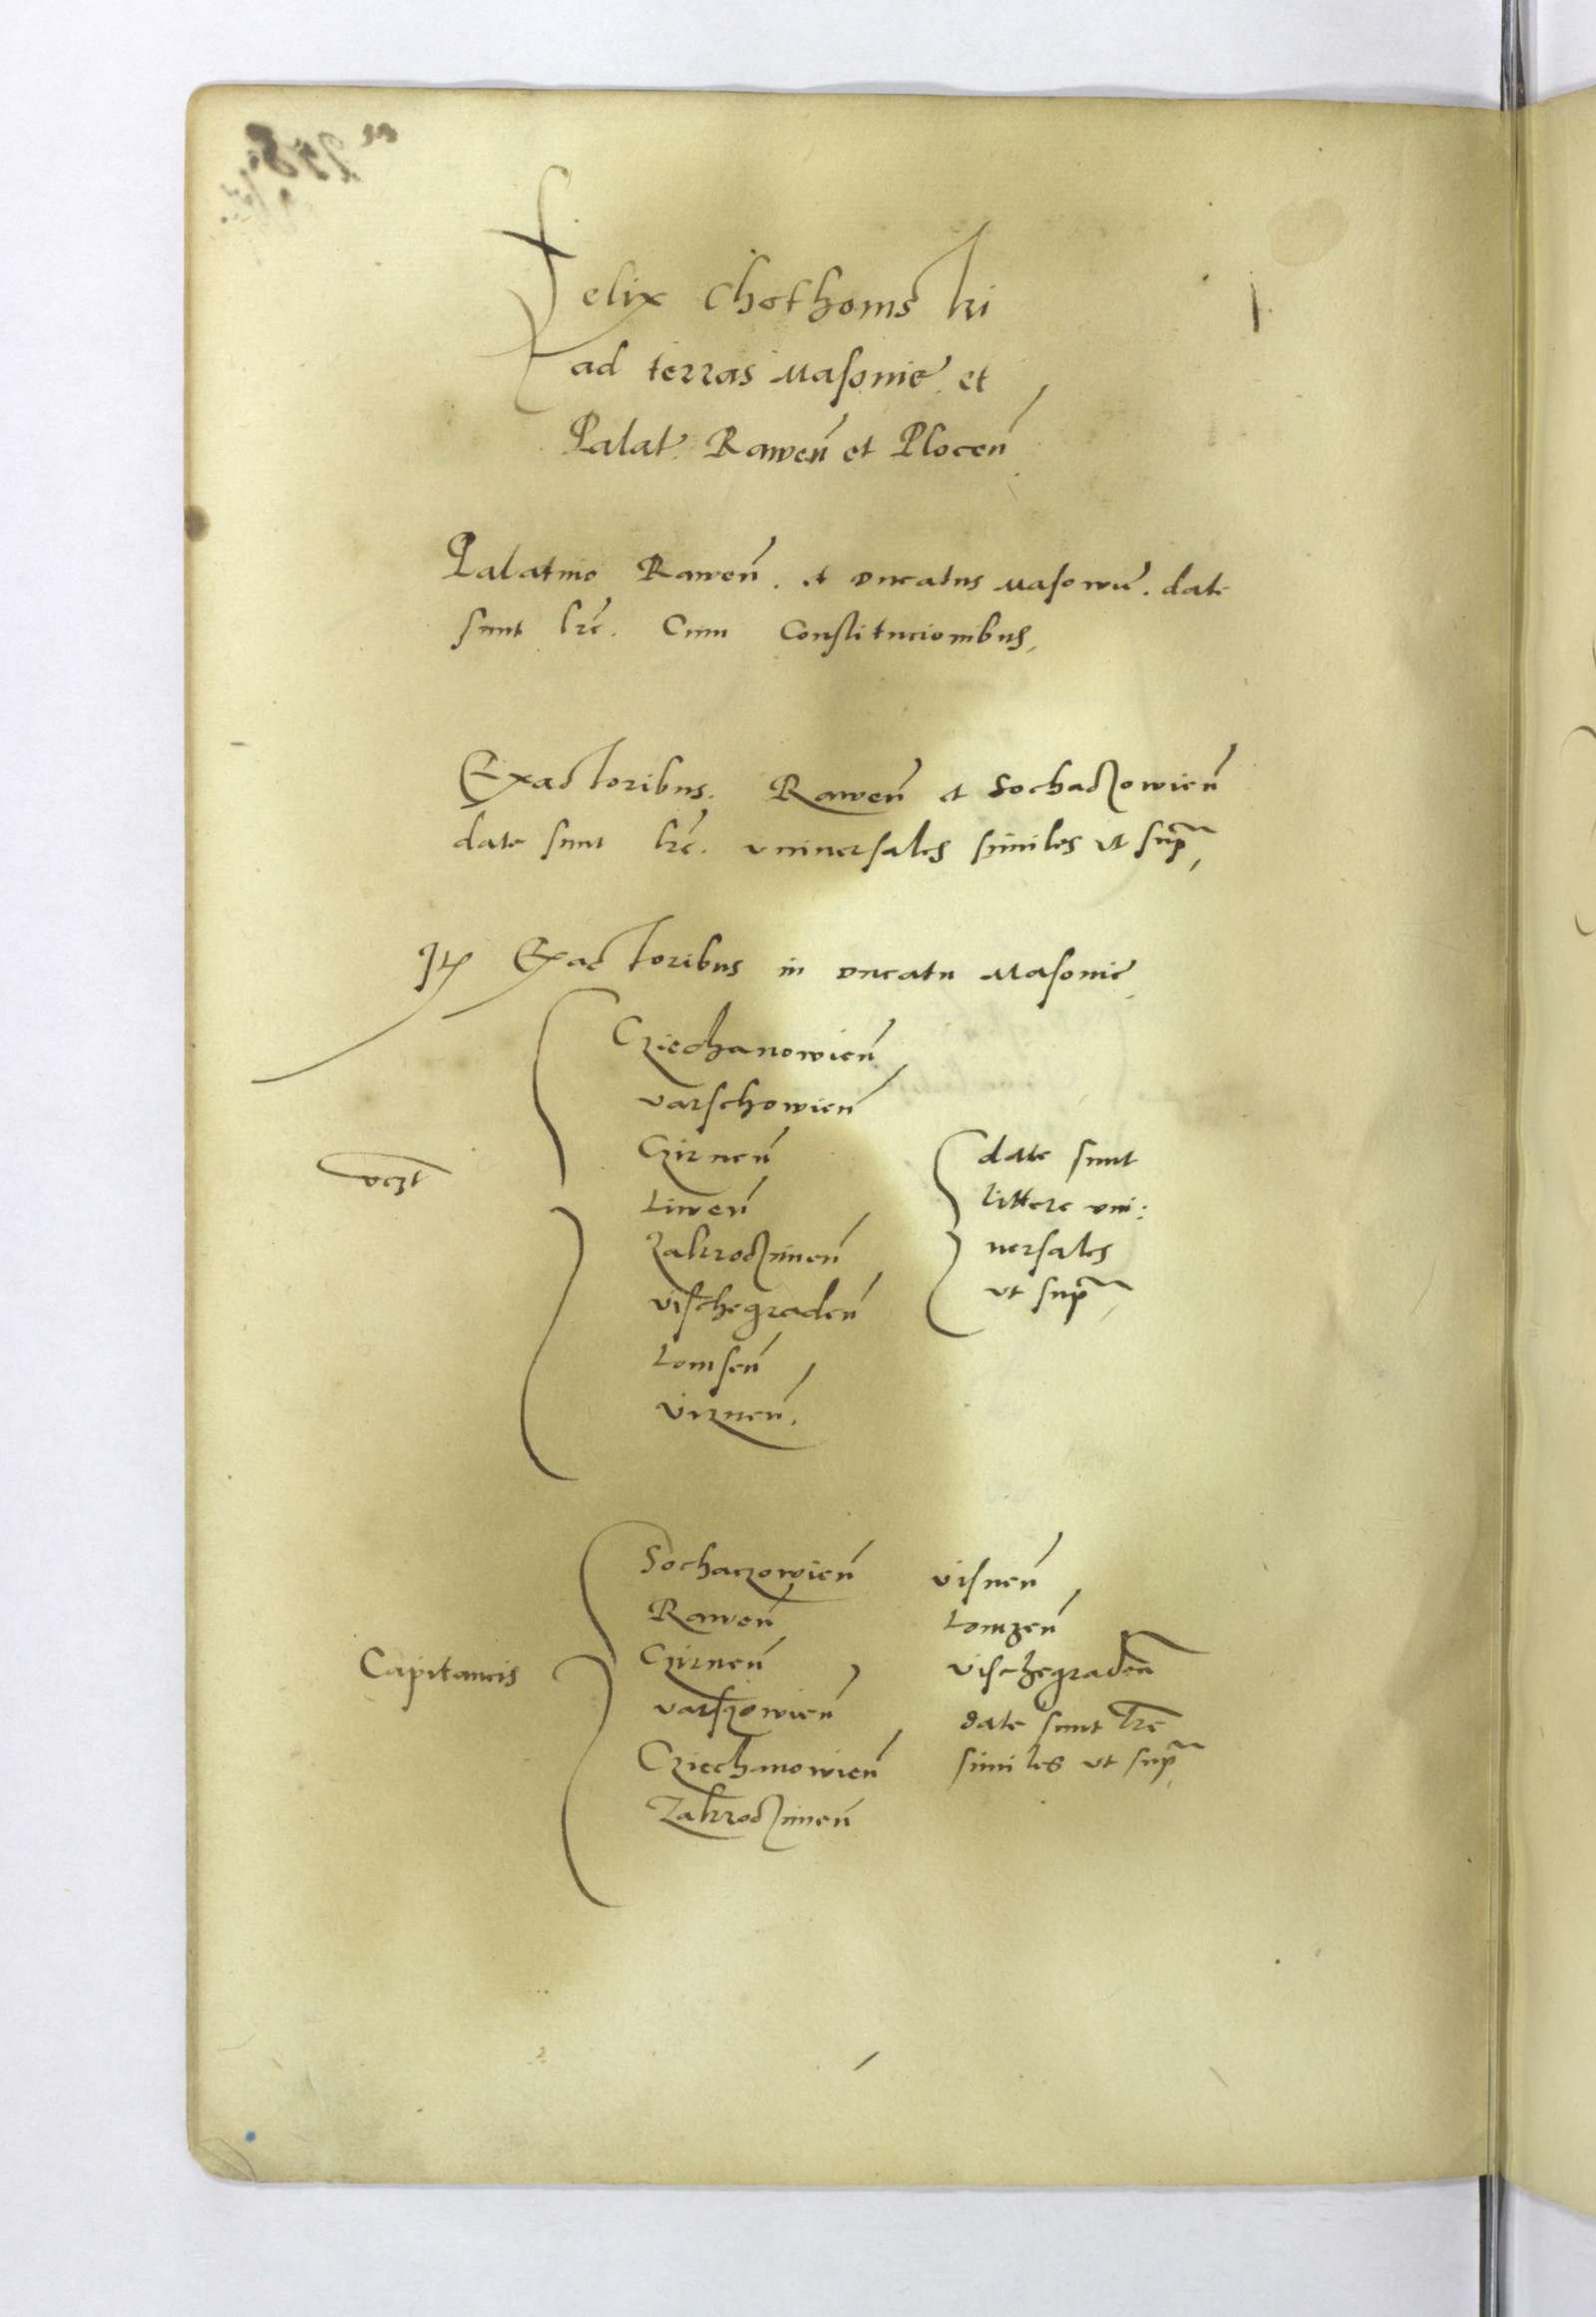 Felix Chothomski
ad terras Masovie et
Palat. Rawen et Plocen
Palatino Rawen. et Ducatus Masovie. date
sunt lre. Cum Constitucionibus,
Exactoribus. Rawen et Sochaczowien
date sunt lre. universales similes ut supra
It Exactoribus in Ducatu Masovie
Cziechanowien
varschowien
Czirnen
Liwen
Zakroczimen
vischegraden
Lomsen
viznen.
vczt
date sunt
littere uni:
versales
ut supra
Capitaneis
Sochaczowien
Rawen
Czirnen
varszowien
Cziechanowien
Zakroczimen
visnen
Lomzen
vischegraden
date sunt lre
similes ut supra